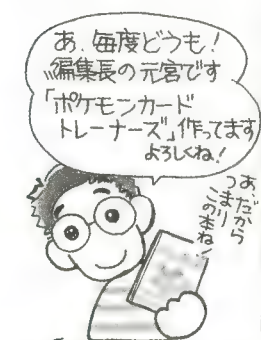 あ、毎度どうも!
編集長の元宮です
「ポケモンカード
トレーナーズ」作ってます
よろしくね!
あ、だから
つまり
この本ね!